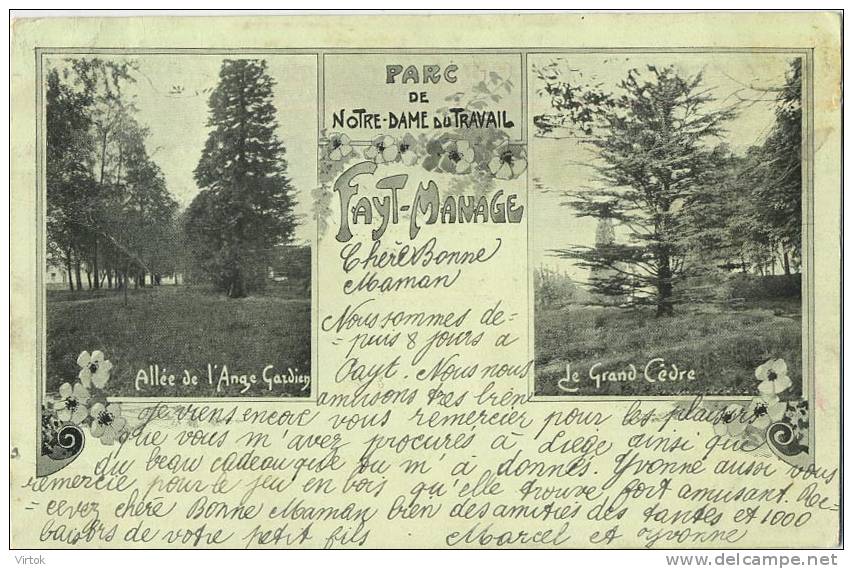 PARC
DE
NOTRE-DAME DU TRAVAIL
FAYT-MANAGE
Chère Bonne
Maman
Nous sommes de-
-puis 8 jours a
Fayt. Nous nous
amusons très bien
Allée de l'Ange Gardien
Le Grand Cèdre
Je viens encore vous remercier pour les plaisirs
que vous m'avez procurés à Liege ainsi que
du beau cadeau que vous m'à donnés. Yvonne aussi vous
remercie pour le jeu en bois qu'elle trouve fort amusant. Re-
-cevez chère Bonne Maman bien des amitiés des tantes et 1000
baisers de votre petit fils Marcel et Yvonne
Virtok
delcampe.net